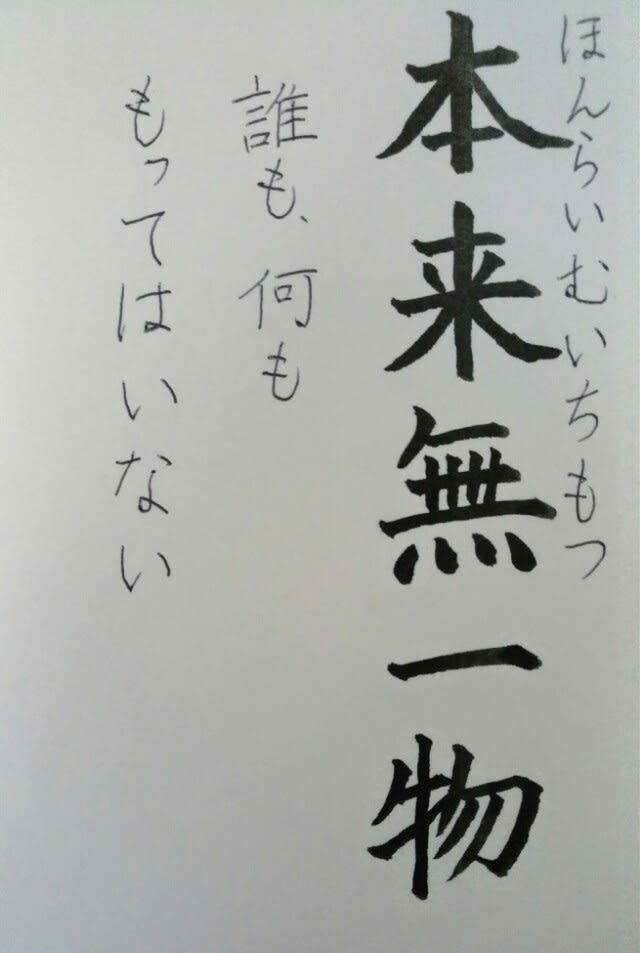 ほんらいむいちもつ
本来無一物
誰も、何も
もってはいない